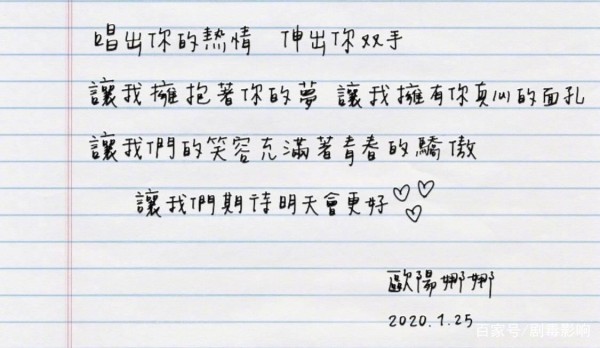 唱出你的熱情 伸出你双手
讓我擁抱著你的夢 讓我擁有你真心的面孔
讓我們的笑容充滿著青春的驕傲
讓我們期待明天會更好
歐陽娜娜
2020.1.25
百家号/剧毒影响